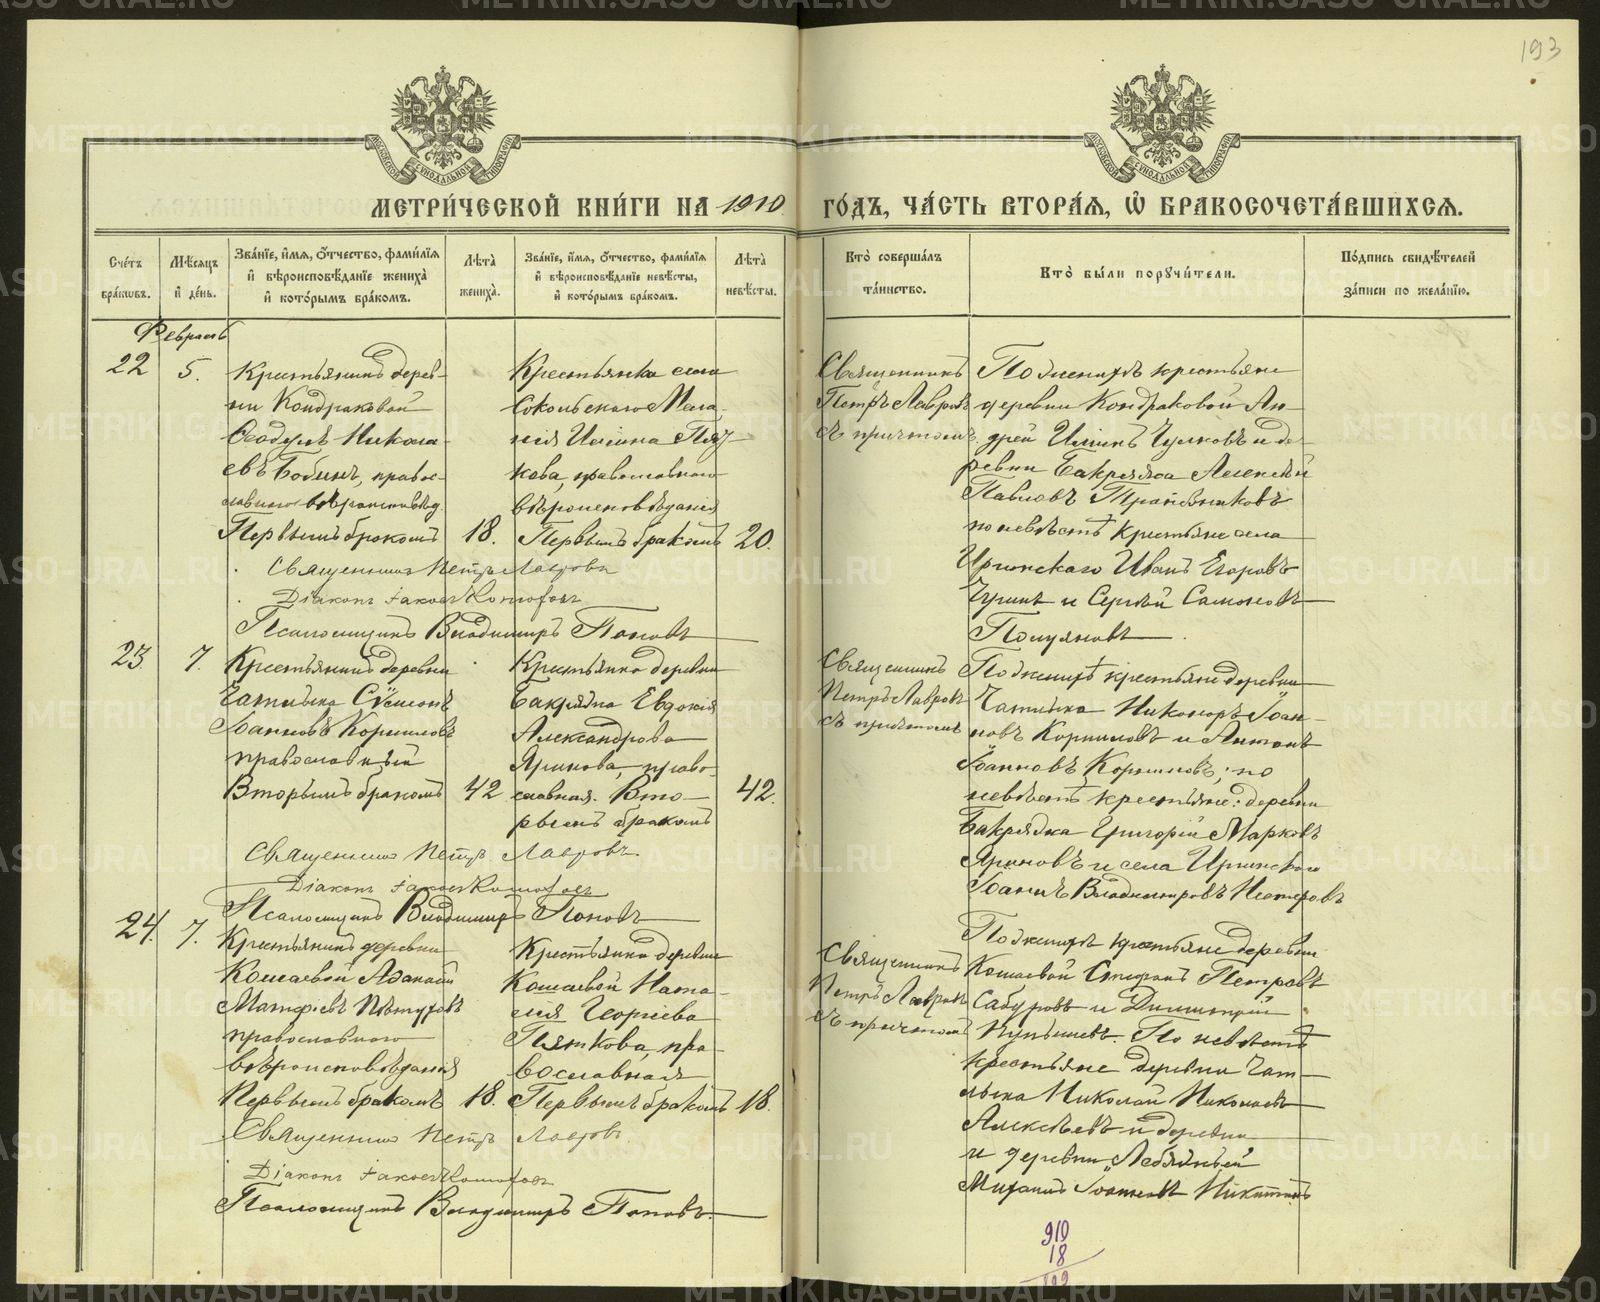 193
МОСКОВСКОЙ СУНОДАЛЬНОЙ ТИПОГРАФІИ
МОСКОВСКОЙ СУНОДАЛЬНОЙ ТИПОГРАФІИ
МЕТРИ́ЧЕСКОЙ КНИ́ГИ НА 1910 ГО́ДЪ, ЧА́СТЬ ВТОРА́Я, Ѽ БРАКОСОЧЕТА́ВШИХСЯ.
Сче́тъ бра́ковъ.
Мѣ́сяцъ и де́нь.
Зва́нїе, и́мя, о́тчество, фами́лїя и вѣроисповѣ́данїе жениха̀ и кото́рымъ бра́комъ.
Лѣта̀ жениха̀.
Зва́нїе, и́мя, о́тчество, фами́лїя и вѣроисповѣ́данїе невѣ́сты, и кото́рымъ бра́комъ.
Лѣта̀ невѣ́сты.
Кто̀ соверша́лъ та́инство.
Кто̀ бы́ли поручи́тели.
По́дпись свидѣ́телей за́писи по жела́нїю.
Февраль
22
5.
Крестьянинъ дерев-
ни Кондраковой
Ѳеодулъ Никола-
евъ Бобинъ, право-
славнаго вѣроисповѣд.
Первымъ бракомъ
18.
Крестьянка села
Сокольскаго Мела-
нія Иліина
кова, православнаго
вѣроисповѣданія
Первымъ бракомъ
20.
Священникъ
Петръ Лавровъ
съ причтомъ.
По женихѣ крестьяне
деревни Кондраковой Ан-
дрей Иліинъ Чулковъ и де-
ревни Бакряжа Алексѣй
Павловъ
по невѣстѣ крестьяне села
Иргинскаго Иванъ Егоровъ
и Сергѣй
Священникъ Петръ Лавровъ
Діаконъ Іаковъ
Псаломщикъ Владимиръ Поповъ
23
7.
Крестьянинъ деревни
Чатлыка Сѵмеонъ
Іоанновъ Корниловъ
православный
Вторымъ бракомъ
42
Крестьянка деревни
Бакряжа Евдокія
Александрова
Яринова, право-
славная. Вто-
рымъ бракомъ
42.
Священникъ
Петръ Лавровъ
съ причтомъ
По женихѣ крестьяне деревни
Чатлыка Никоноръ Іоан-
новъ Корниловъ и Антонъ
Іоанновъ Корниловъ; по
невѣстѣ крестьяне: деревни
Бакряжа Григорій Марковъ
Яриновъ и села Иргинскаго
Іоаннъ Владимировъ Нестеровъ
Священникъ Петръ Лавровъ.
Діаконъ Іаковъ
Псаломщикъ Владимиръ Поповъ
24.
7.
Крестьянинъ деревни
Кошаевой Аѳанасій
Матѳіевъ Пѣтуховъ
православнаго
вѣроисповѣданія
Первымъ бракомъ
18.
Крестьянка деревни
Кошаевой Ната-
лія Георгіева
Пяткова, пра-
вославная
Первымъ бракомъ
18.
Священникъ
Петръ Лавровъ
съ причтомъ
По женихѣ крестьяне деревни
Кошаевой Стефанъ Петровъ
Сабуровъ и Димитрій
По невѣстѣ
крестьяне деревни Чат-
лыка Николай Николаевъ
Алексѣевъ и деревни
и деревни „Лебяжьей"
Михаилъ Никитинъ
Священникъ Петръ Лавровъ
Діаконъ Іаковъ
Псаломщикъ Владимиръ Поповъ.
910
18
METRIKI.GASO-URAL.RU